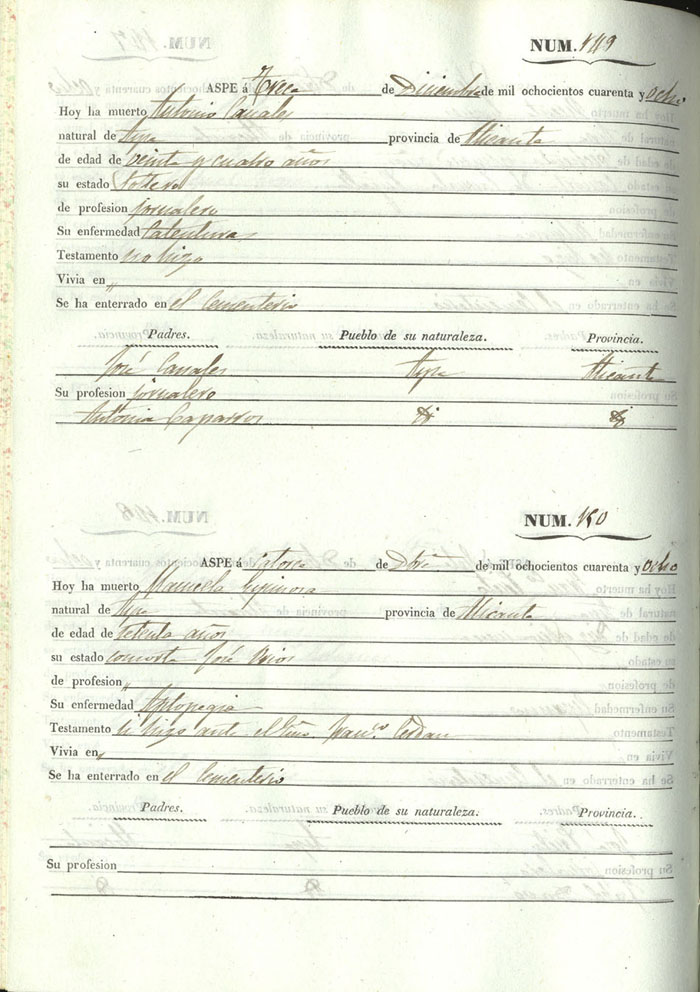 NUM. 149
ASPE á Trece de Diciembre de mil ochocientos cuarenta y ocho
Hoy ha muerto Antonio Canales
natural de Aspe provincia de Alicante
de edad de veinte y cuatro años
su estado soltero
de profesion jornalero
Su enfermedad Calentura
Testamento no hizo
Vivia en „
Se ha enterrado en el Cementerio
Padres. Pueblo de su naturaleza. Provincia.
José Canales Aspe Alicante
Su profesion jornalero
Antonia Caparros
NUM. 150
ASPE á catorce de Dbre de mil ochocientos cuarenta y ocho
Hoy ha muerto Manuela Espinosa
natural de Aspe provincia de Alicante
de edad de setenta años
su estado consorte José
de profesion „
Su enfermedad Aplopegia
Testamento si hizo ante el Cerdan
Vivia en „
Se ha enterrado en el Cementerio
Padres. Pueblo de su naturaleza. Provincia.
Su profesion